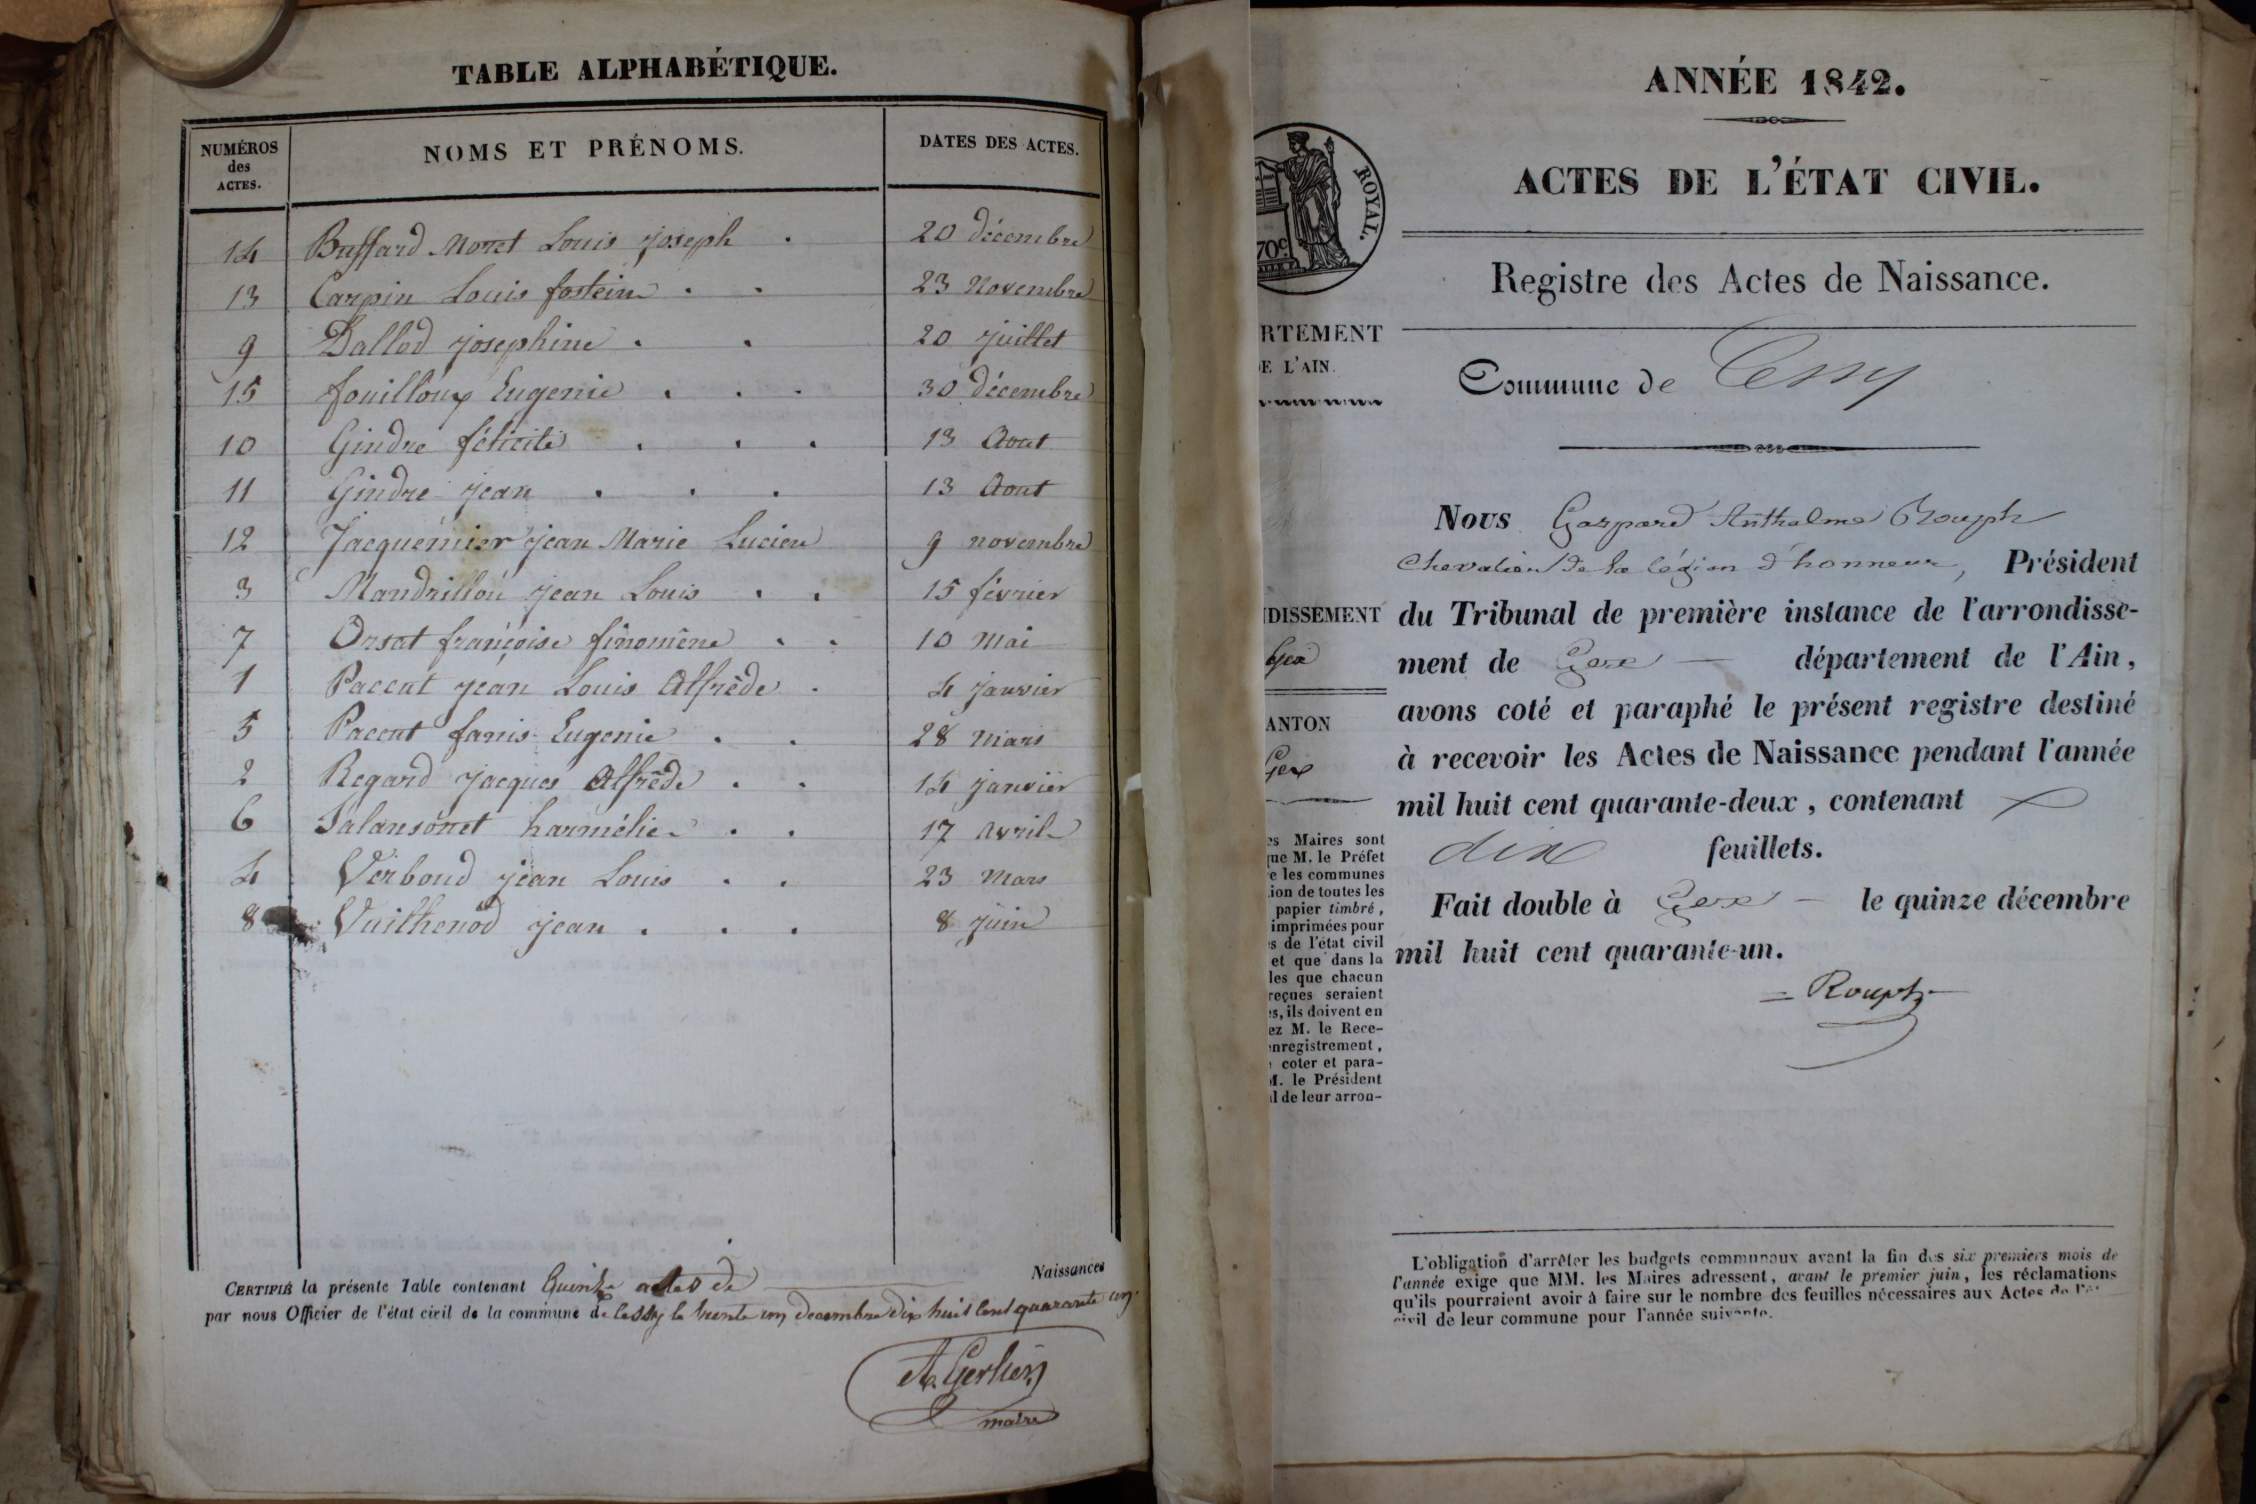 TABLE ALPHABÉTIQUE.
NUMÉROS des ACTES. NOMS ET PRÉNOMS. DATES DES ACTES.
14 Buffard Moret Louis joseph 20 décembre
13 Carpin Louis fostein 23 Novembre
9 Dallod josephine 20 juillet
15 fouilloux Eugenie 30 décembre
10 Gindre félicité 13 Aout
11 Gindre jean 13 Aout
12 Jacquemier jean Marie Lucien 9 novembre
3 Mandrillon jean Louis 15 février
7 Orsat françoise finomène 10 Mai
1 Pacent jean Louis Alfrède 4 janvier
5 Pacent fanis Eugenie 28 Mars
2 Regard jacques Alfrède 14 janvier
6 Salansonet harmélie 17 Avril
4 Verboud jean Louis 23 Mars
8 Vuilhenod jean 8 juin
CERTIFIÉ la présente Table contenant Quinze actes de Naissances
par nous Officier de l'état civil de la commune de Cessy le trente un decembre dix huit cent quarante un.
A. Gerlier
maire
ANNÉE 1842.
ACTES DE L'ÉTAT CIVIL.
Registre des Actes de Naissance.
Commune de Cessy
ROYAL.
70c.
RTEMENT
DE L'AIN.
NDISSEMENT
Gex
ANTON
Gex
es Maires sont
que M. le Préfet
e les communes
ion de toutes les
papier timbré,
imprimées pour
s de l'état civil
et que dans la
les que chacun
reçues seraient
s, ils doivent en
ez M. le Rece-
nregistrement,
coter et para-
M. le Président
l de leur arron-
Nous Gaspard Anthelme Rouph
chevalier de la légion d'honneur, Président
du Tribunal de première instance de l'arrondisse-
ment de Gex département de l'Ain,
avons coté et paraphé le présent registre destiné
à recevoir les Actes de Naissance pendant l'année
mil huit cent quarante-deux, contenant
dix feuillets.
Fait double à Gex le quinze décembre
mil huit cent quarante-un.
Rouph
L'obligation d'arrêter les budgets communaux avant la fin des six premiers mois de
l'année exige que MM. les Maires adressent, avant le premier juin, les réclamations
qu'ils pourraient avoir à faire sur le nombre des feuilles nécessaires aux Actes de l'é
civil de leur commune pour l'année suivante.